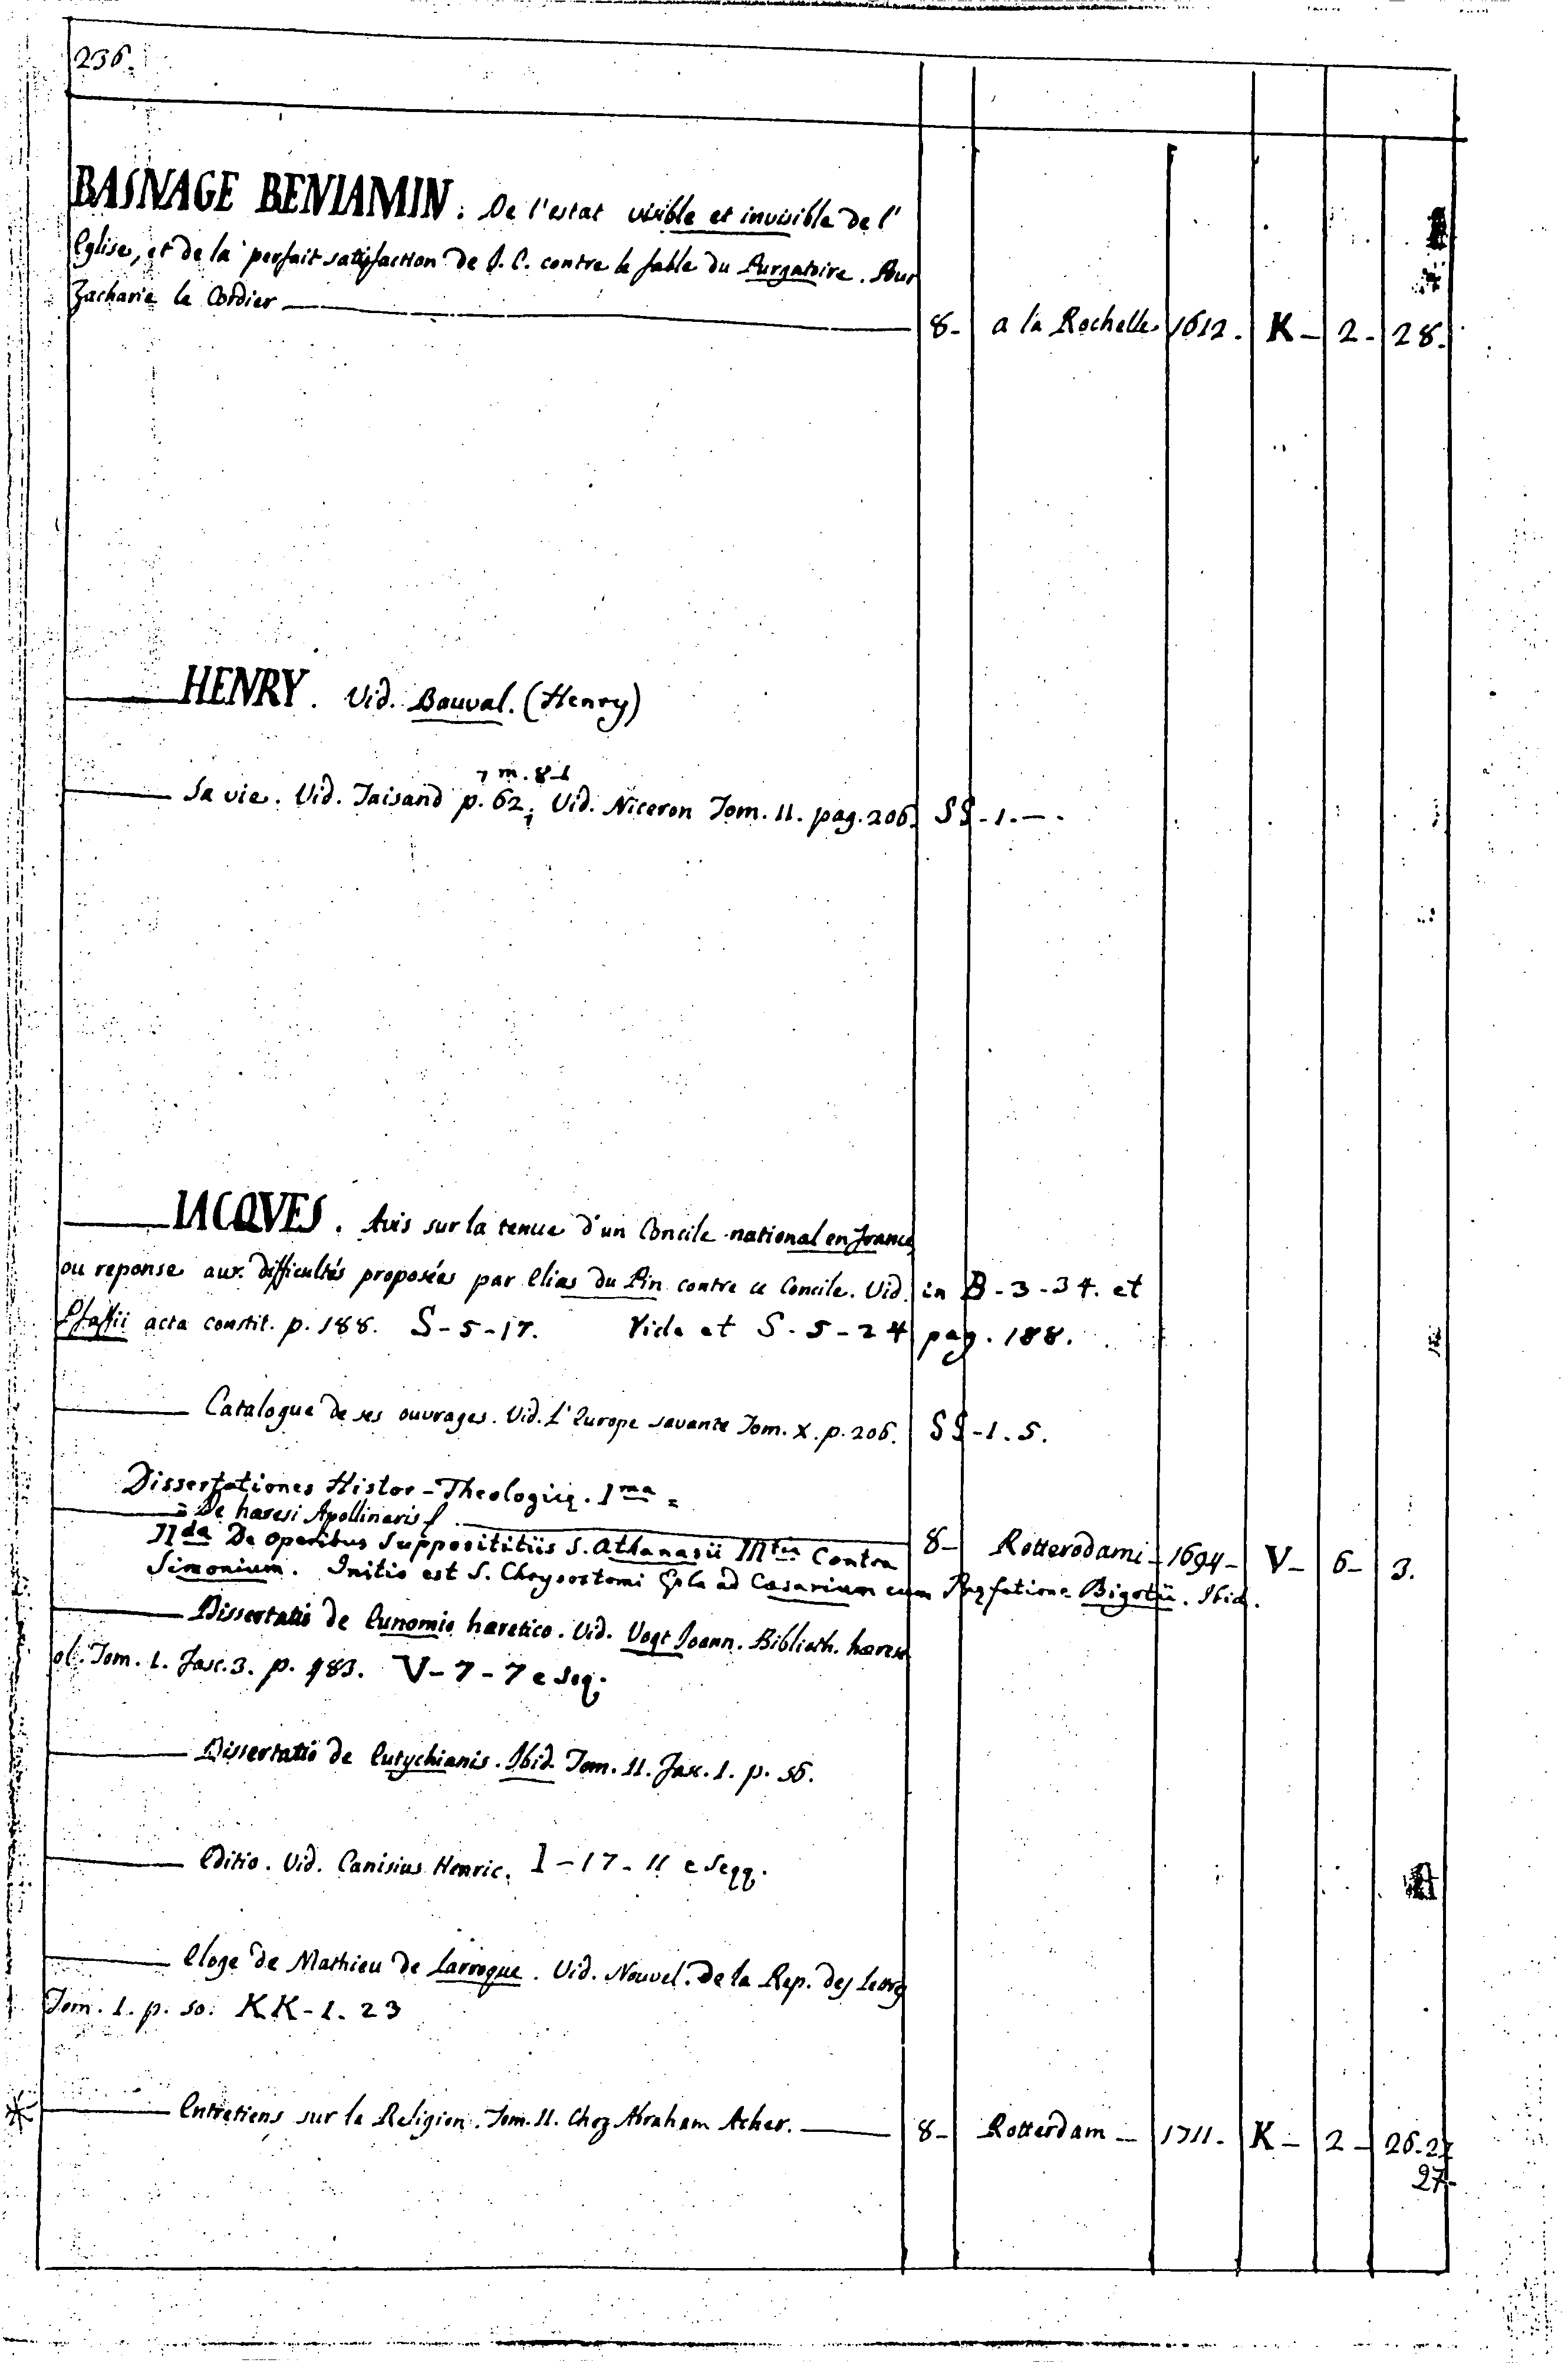 236.
BASNAGE BENIAMIN : De l'estat visible et invisible de l'
Eglise, et de la perfait satisfaction de J. C. contre la fable du Purgatoire. Pour
Zacharie le Cordier — 8- a la Rochelle 1612. K- 2- 28.
— HENRY. Vid. Bauval. (Henry)
7 m. 8-1
— Sa vie. Vid. Taisand p. 62; Vid. Niceron Tom. II. pag. 206. SS-1.-.
— IACQVES. Avis sur la tenue d'un Concile national en France
ou reponse aux difficultés proposées par Elias du Pin contre ce Concile. Vid. in B-3-34. et
Pfaffii acta constit. p. 188. S-5-17. Vide et S-5-24 pag. 188.
— Catalogue de ses ouvrages. Vid. L'Europe savante Tom. X. p. 206. SS-1.5.
Dissertationes Histor-Theologicę. Ima =
= De haresi Apollinaris — 8- Rotterodami- 1694- V- 6- 3.
IIda De operibus Supposititiis S. Athanasii IIItia Contra
Simonium. Initio est S. Chrysostomi Epla ad Cæsarium cum Pręfatione Bigotii. Ibid.
— Dissertatio de Eunomio hæretico. Vid. Vogt Joann. Biblioth. hæresi
ol. Tom. I. Fasc. 3. p. 483. V-7-7 e seq;
— Dissertatio de Eutychianis. Ibid. Tom. II. Fasc. 1. p. 56.
— Editio. Vid. Canisius Henric. I-17-11 e seqq.
— Eloge de Mathieu de Larroque. Vid. Nouvel. de la Rep. des
Tom. 1. p. 50. KK-1.23
* — Entretiens sur la Religion. Tom. II. Chez Abraham Acher. — 8- Rotterdam — 1711. K- 2- 26.27
27-